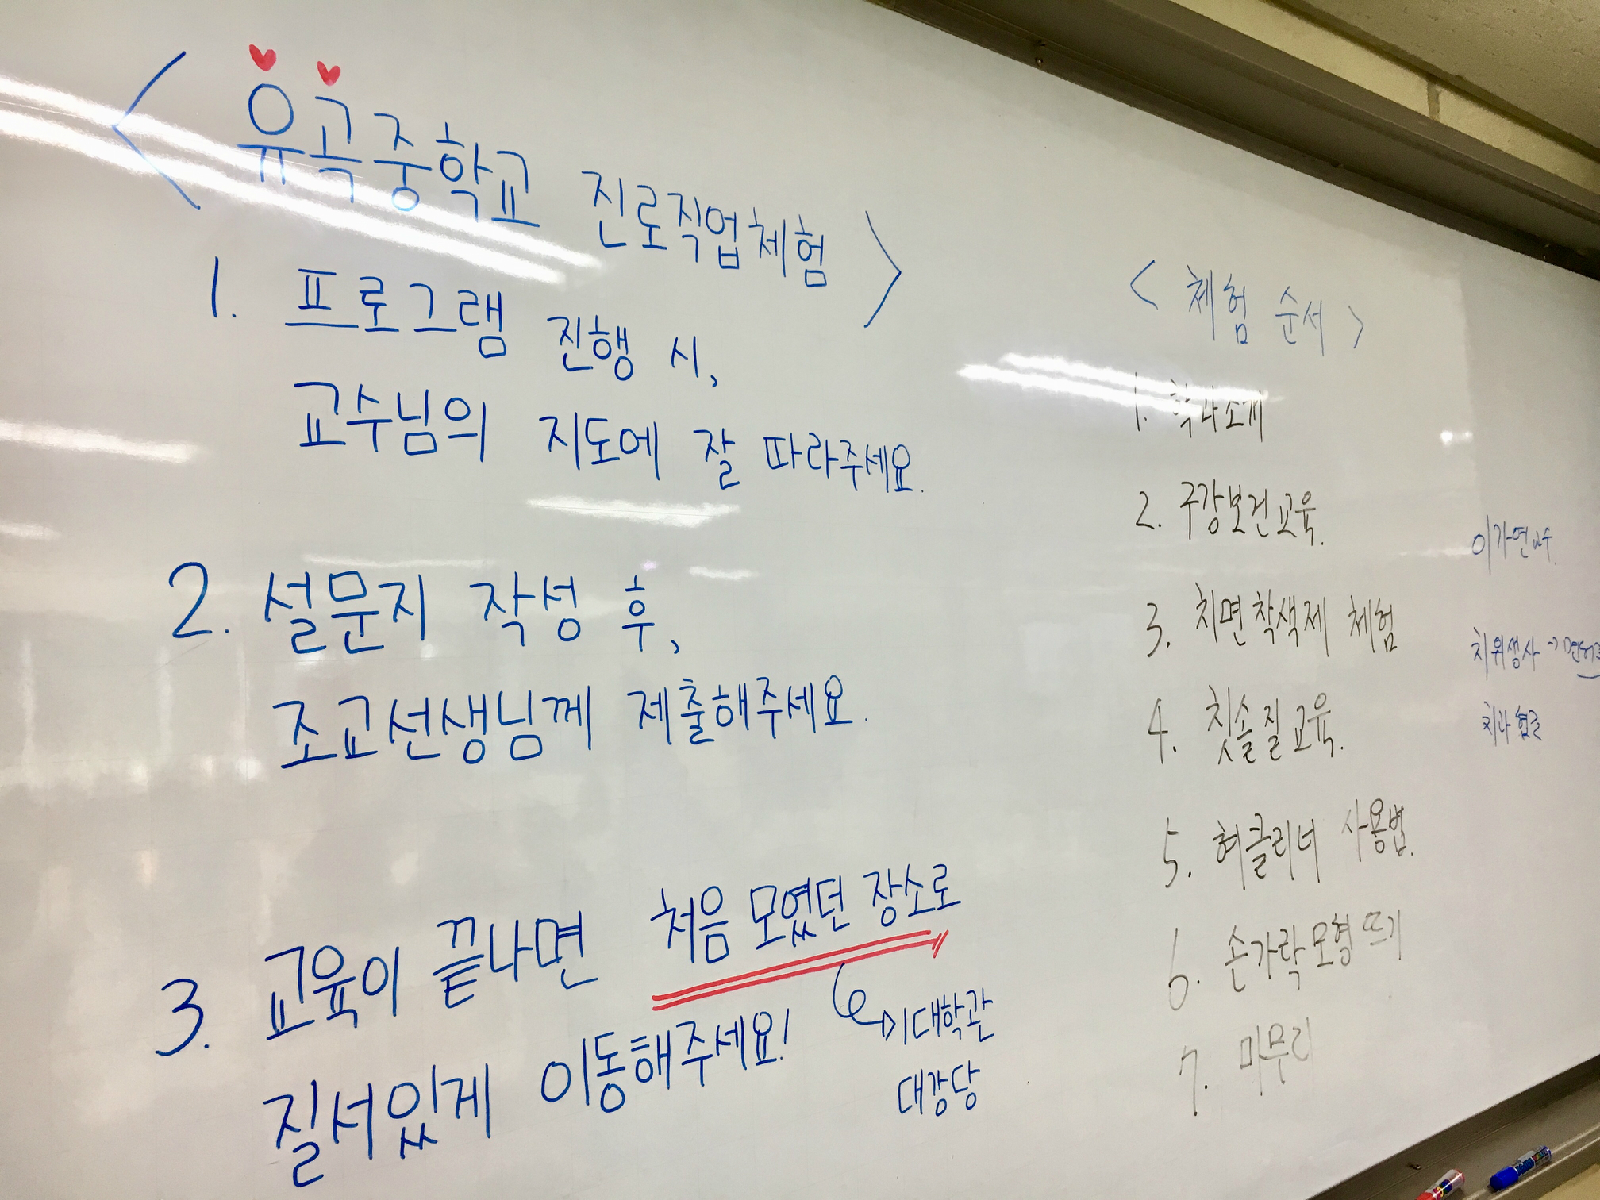 <유곡중학교 진로직업체험>
1. 프로그램 진행 시,
교수님의 지도에 잘 따라주세요.
2. 설문지 작성 후,
조교선생님께 제출해주세요.
3. 교육이 끝나면 처음 모였던 장소로
질서있게 이동해주세요!
대학관
대강당
<체험 순서>
1. 학과소개
2. 구강보건교육.
3. 치면착색제 체험
4. 칫솔질교육.
5. 혀클리너 사용법.
6. 손가락모형뜨기
7. 마무리
이가연교수
치위생사 →
치과